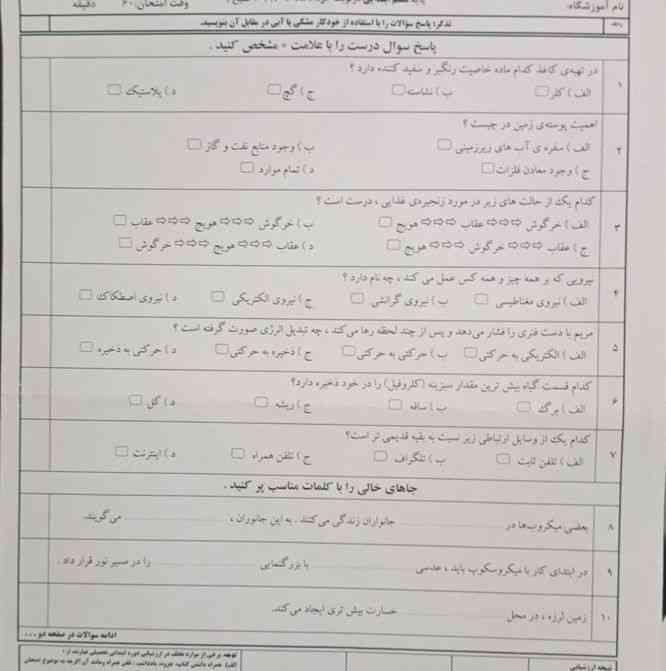 نام آموزشگاه:
وقت امتحان: ۶۰ دقیقه
تذکر: پاسخ سؤالات را با استفاده از خودکار مشکی یا آبی در مقابل آن بنویسید.
پاسخ سوال درست را با علامت × مشخص کنید .
۱ در تهیه‌ی کاغذ کدام ماده خاصیت رنگبر و سفید کننده دارد ؟
الف ) کلر ب ) نشاسته ج ) گچ د ) پلاستیک
۲ اهمیت پوسته‌ی زمین در چیست ؟
الف ) سفره ی آب های زیرزمینی ب ) وجود منابع نفت و گاز
ج ) وجود معادن فلزات د ) تمام موارد
۳ کدام یک از حالت های زیر در مورد زنجیره‌ی غذایی ، درست است ؟
الف ) خرگوش ⇨⇨⇨ عقاب ⇨⇨⇨ هویج ب ) خرگوش ⇨⇨⇨ هویج ⇨⇨⇨ عقاب
ج ) عقاب ⇨⇨⇨ خرگوش ⇨⇨⇨ هویج د ) عقاب ⇨⇨⇨ هویج ⇨⇨⇨ خرگوش
۴ نیرویی که بر همه چیز و همه کس عمل می کند ، چه نام دارد ؟
الف ) نیروی مغناطیسی ب ) نیروی گرانشی ج ) نیروی الکتریکی د ) نیروی اصطکاک
۵ مریم با دست فنری را فشار می‌دهد و پس از چند لحظه رها می‌کند ، چه تبدیل انرژی صورت گرفته است ؟
الف ) الکتریکی به حرکتی ب ) حرکتی به حرکتی ج ) ذخیره به حرکتی د ) حرکتی به ذخیره
۶ کدام قسمت گیاه بیش ترین مقدار سبزینه (کلروفیل) را در خود ذخیره دارد؟
الف ) برگ ب ) ساقه ج ) ریشه د ) گل
۷ کدام یک از وسایل ارتباطی زیر نسبت به بقیه قدیمی تر است؟
الف ) تلفن ثابت ب ) تلگراف ج ) تلفن همراه د ) اینترنت
جاهای خالی را با کلمات مناسب پر کنید .
۸ بعضی میکروب‌ها در .................... جانوران زندگی می کنند . به این جانوران ، .................... می‌گویند.
۹ در ابتدای کار با میکروسکوپ باید ، عدسی .................... با بزرگنمایی .................... را در مسیر نور قرار داد .
۱۰ زمین لرزه ، در محل .................... خسارت بیش تری ایجاد می‌کند.
ادامه سوالات در صفحه دو ....
نتیجه ارزشیابی
توجه: برخی از موارد تخلف در ارزشیابی دوره ابتدایی تحصیلی عبارتند از :